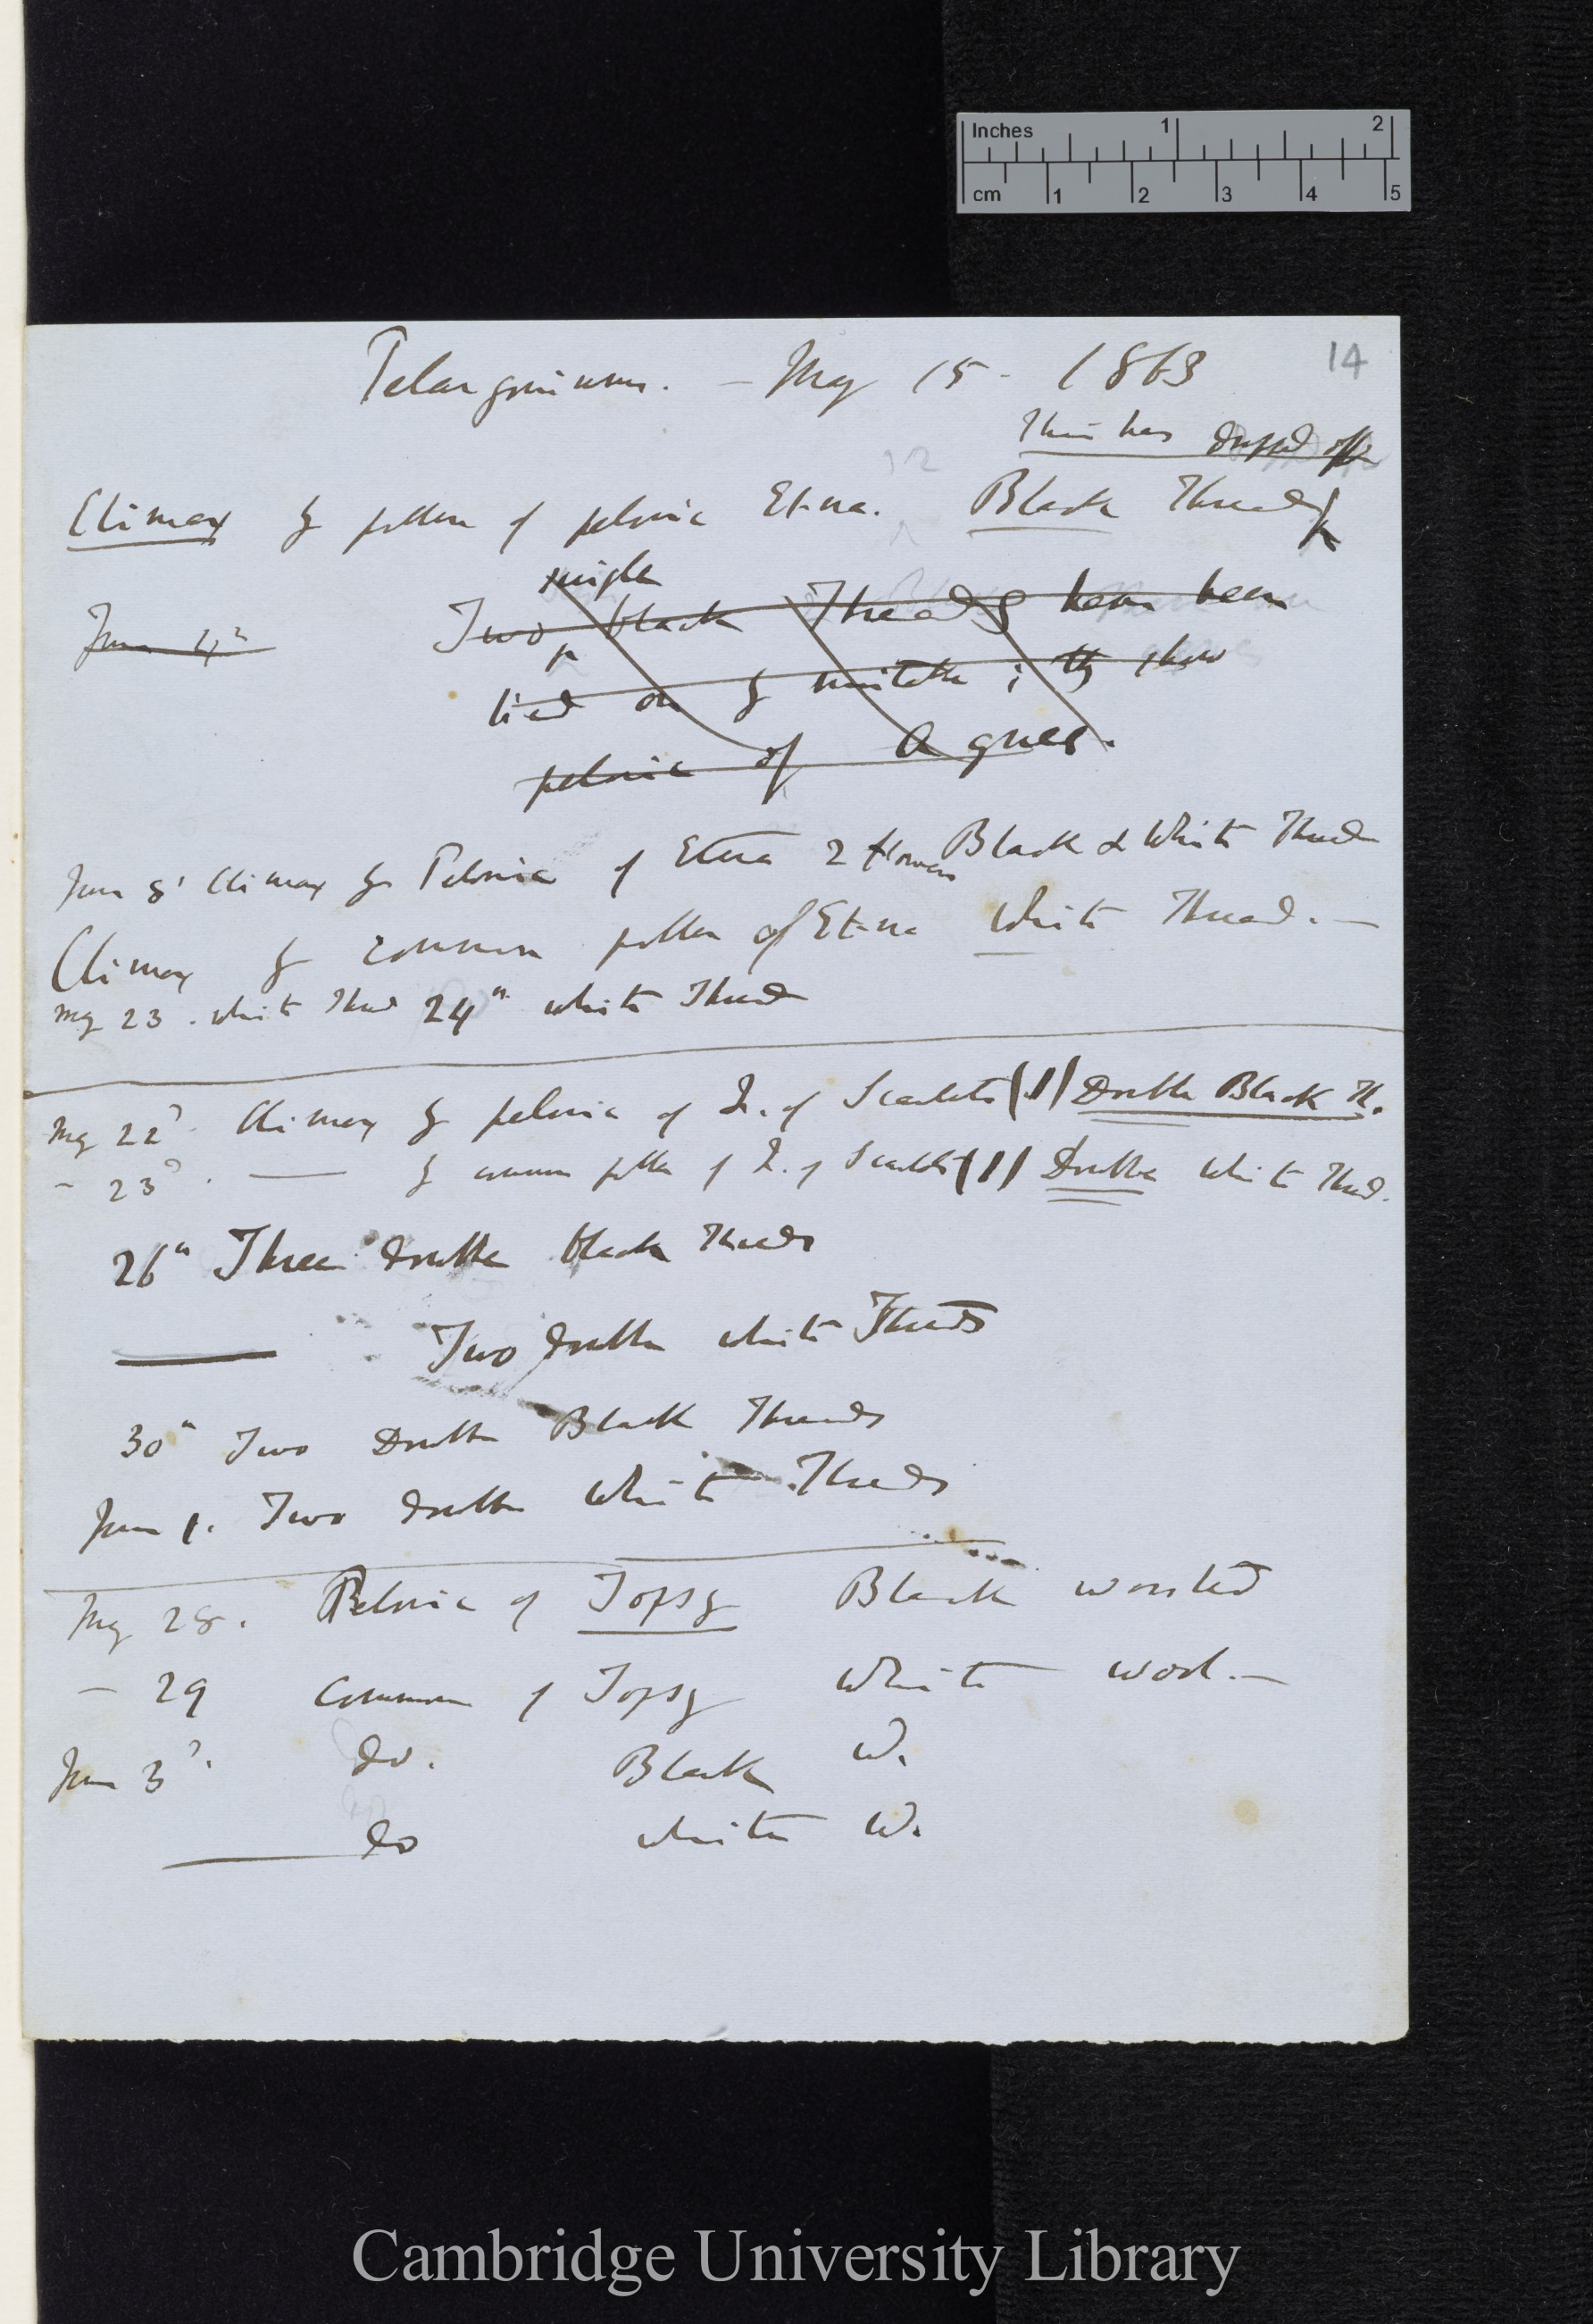 Inches 1 2
cm 1 2 3 4 5
14
Pelargoniums. — May 15. 1863
This has dropped off
Climax by pollen of peloric Etna. Black Thread
single
June 4th Two black Threads have been
tied on by mistake; they show
peloric of Agnes.
June 8' Climax by Peloric of Etna 2 flowers Black & White Thread
Climax by common pollen of Etna White Thread. —
May 23. white Thread 24th white Thread
May 22d. Climax by peloric of Q. of Scarlets (11) Double Black Th.
— 23d. —— by common pollen of Q. of Scarlets (11) Double White Thread.
26th Three double black Threads
—— Two double white Threads
30th Two Double Black Threads
June 1. Two double White Threads
May 28. Peloric of Topsy Black worsted
— 29 Common of Topsy White wool. —
June 3d. do. Black W.
—— do white W.
Cambridge University Library